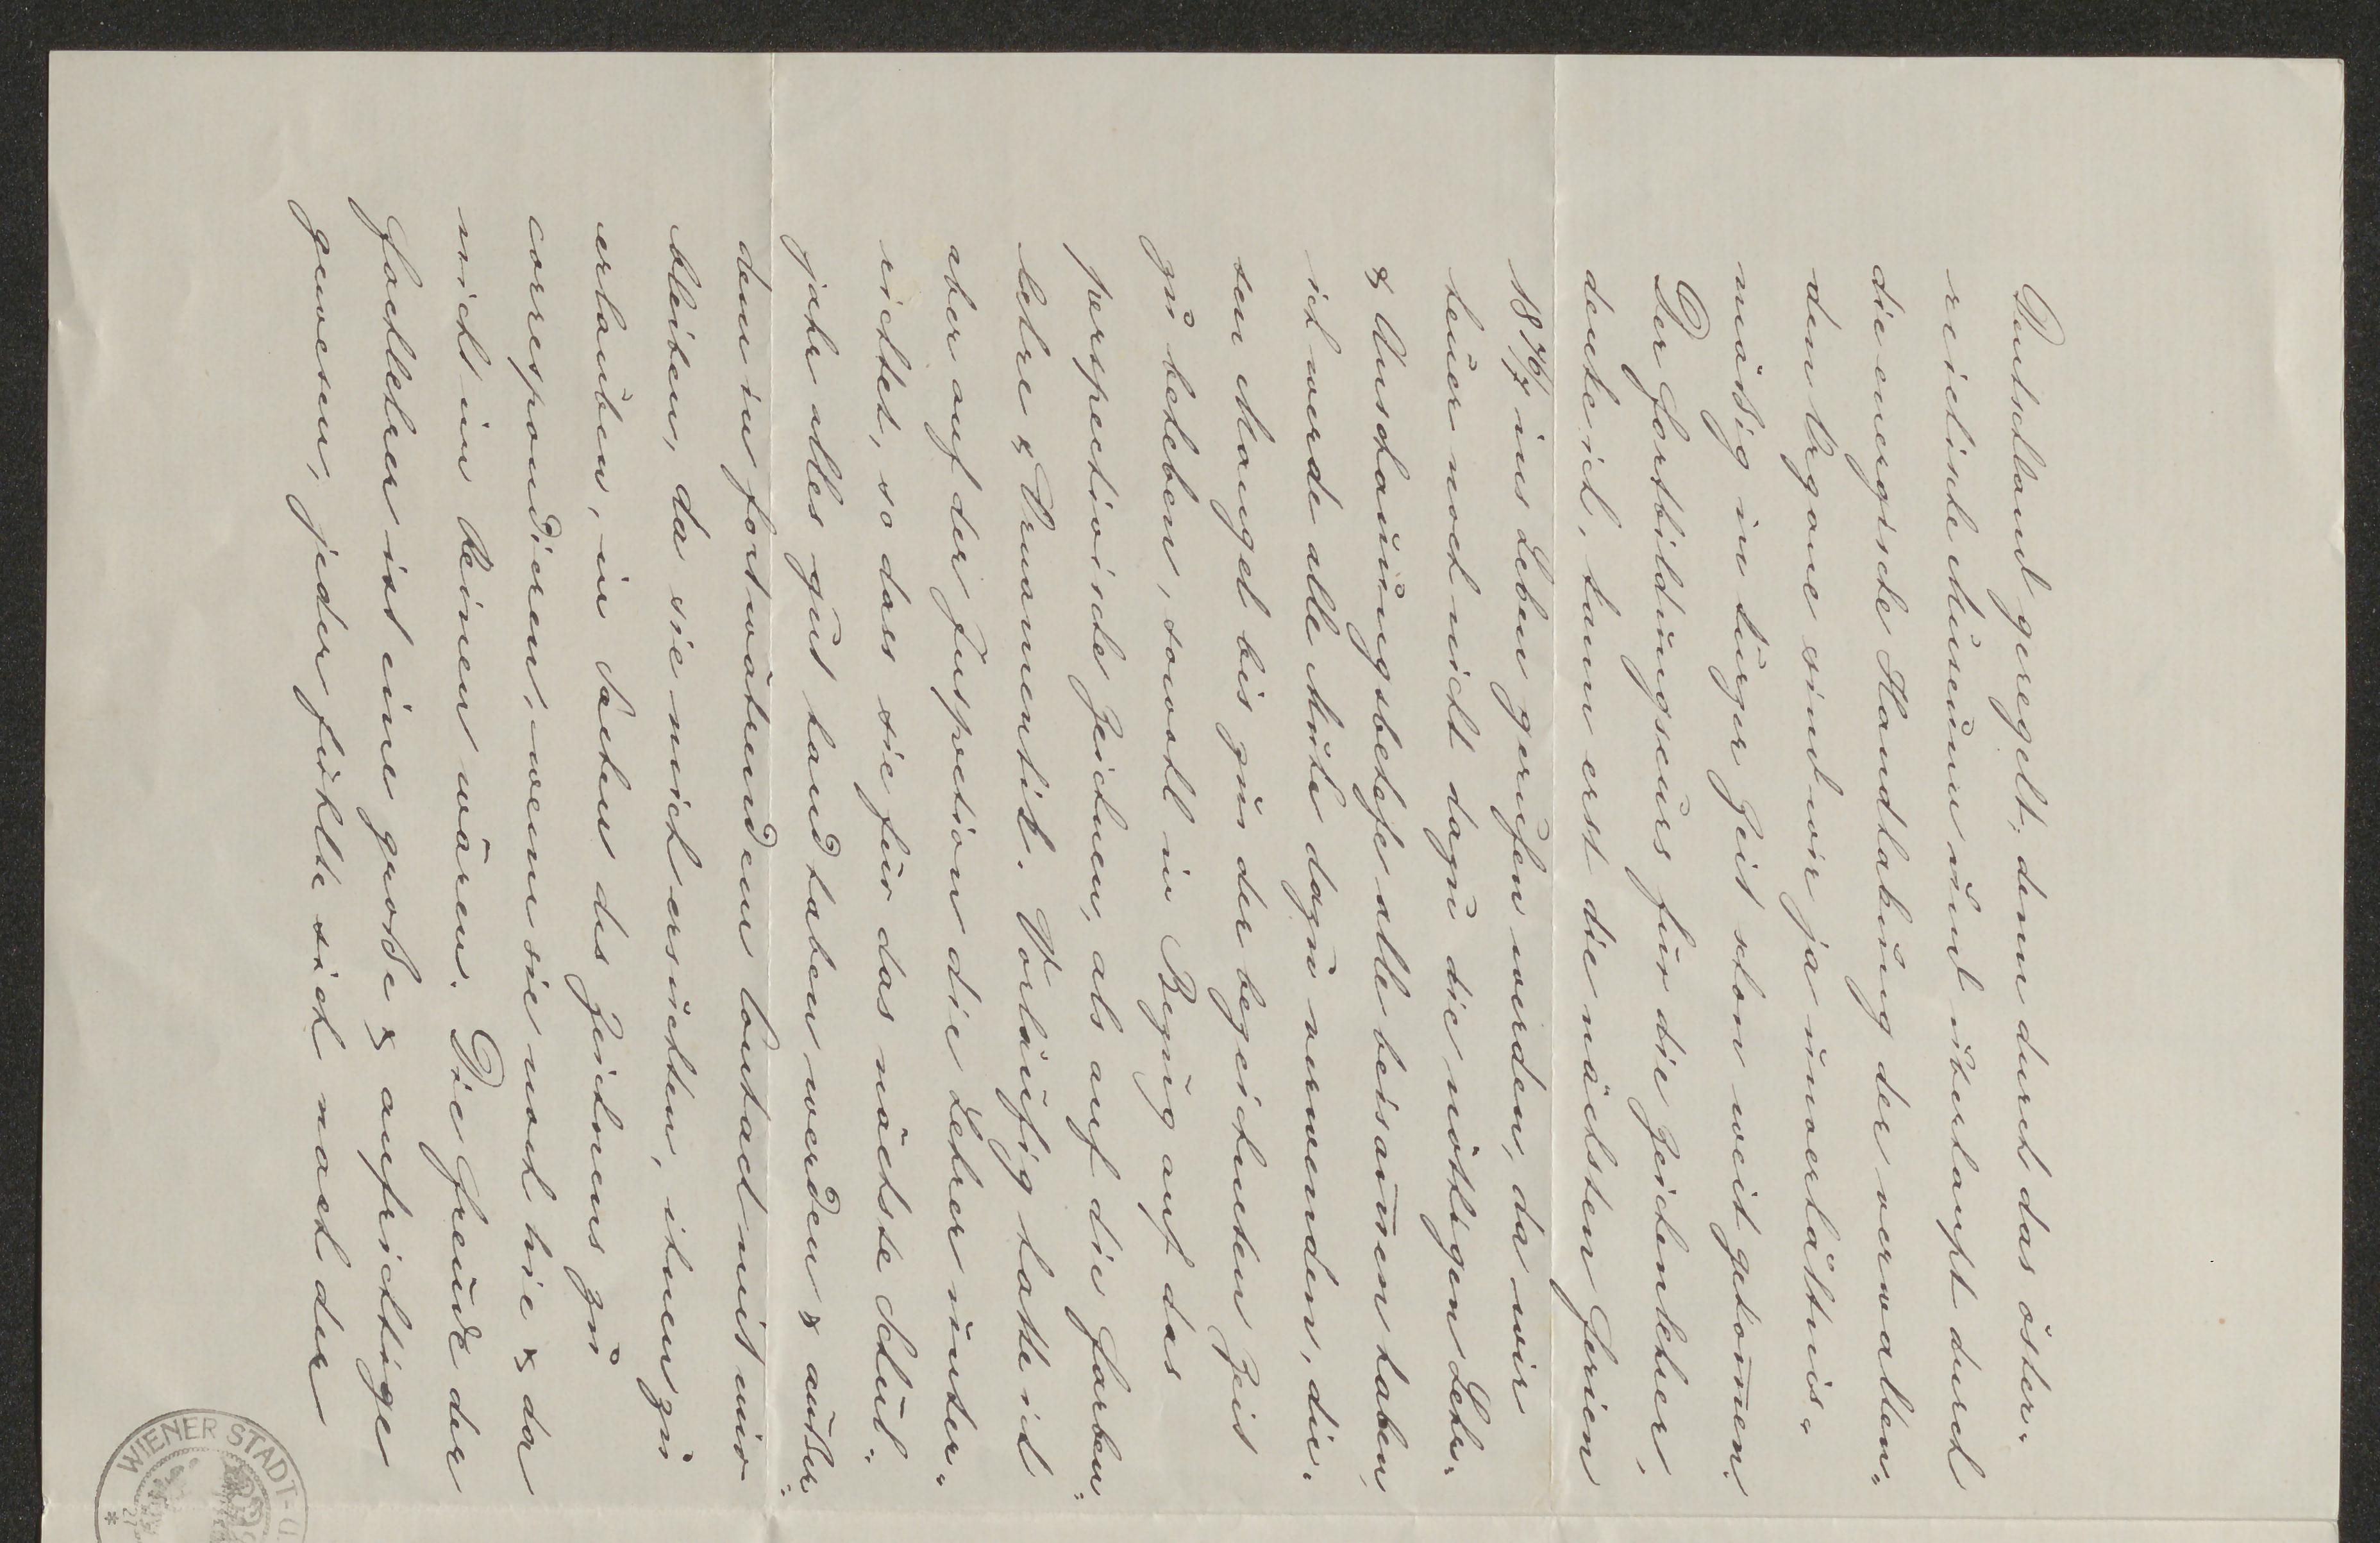 Deutschland geregelt, denn durch das öster-
reichische Museum und überhaupt durch
die energische Handhabung der verwalten-
den Organe sind wir ja unverhältnis-
mäßig in kurzer Zeit schon weit gekom̄en.
Der Fortbildungscurs für die Zeichenlehrer,
denke ich, kann erst die nächsten Ferien
1876/7 ins Leben gerufen werden, da wir
heuer noch nicht dazu die nöthigen Lehr-
& Anschauungsbehelfe alle beisam̄en haben,
ich werde alle Mühe dazu verwenden, die-
sen Mangel bis zu der bezeichneten Zeit
zu beheben, sowohl in Bezug auf das
perspectivische Zeichnen, als auf die Farben-
lehre & Ornamentik. Vorläufig hatte ich
aber auf der Inspection die Lehrer unter-
richtet, so dass sie für das nächste Schul-
jahr alles gut handhaben werden & außer-
dem in fortwährendem Contact mit mir
bleiben, da sie mich ersuchten, ihnen zu
erlauben, in Sachen des Zeichnens zu
correspondieren, wenn sie noch hie & da
nicht im Reinen wären. Die Freude der
Fachlehrer ist eine große & aufrichtige
gewesen, jeder fühlte sich nach der
WIENER STADT-